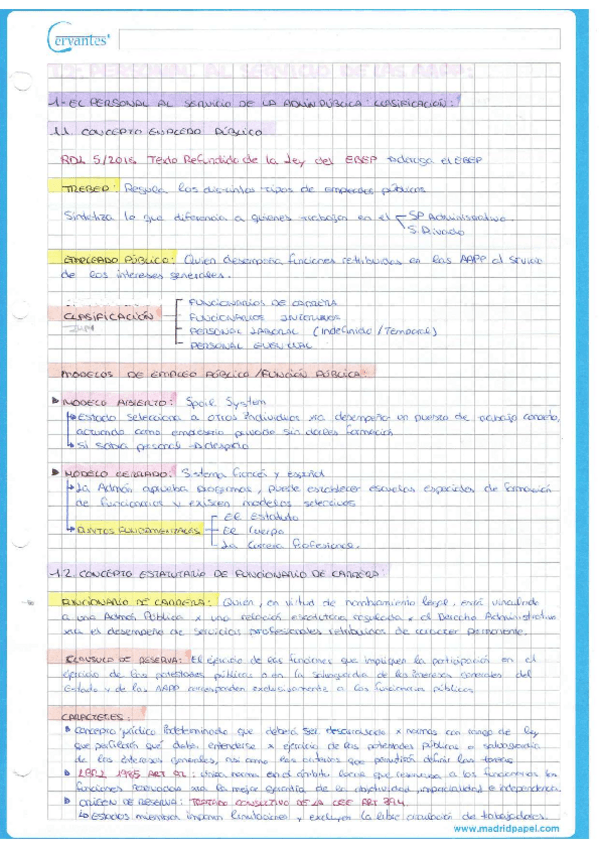 Cervantes
PERSONAL AL SERVICIO DE LAS AAPP:
1- EL PERSONAL AL SERVICIO DE LA ADMÓN PÚBLICA: CLASIFICACIÓN:
1.1 CONCEPTO EMPLEADO PÚBLICO
RDL 5/2015, Texto Refundido de la Ley del EBEP → deroga el EBEP
TREBEP: Regula los distintos tipos de empleados públicos
Sintetiza lo que diferencia a quienes trabajan en el SP Administrativo
S. Privado
EMPLEADO PÚBLICO: Quien desempeña funciones retribuidas en las AAPP al servicio
de los intereses generales.
CLASIFICACIÓN
FUNCIONARIOS DE CARRERA
FUNCIONARIOS INTERINOS
PERSONAL LABORAL (Indefinido / Temporal)
PERSONAL EVENTUAL
MODELOS DE EMPLEO PÚBLICO / FUNCIÓN PÚBLICA:
MODELO ABIERTO: Spoil System
Estado selecciona a otros individuos xa desempeñar un puesto de trabajo concreto,
actuando como empresario privado sin darles formación
Si sobra personal → despido
MODELO CERRADO: Sistema francés y español
La Admón aprueba programas, puede establecer escuelas especiales de formación
de funcionarios y existen modelos selectivos
PUNTOS FUNDAMENTALES
El Estatuto
El Cuerpo
La Carrera Profesional.
1.2 CONCEPTO ESTATUTARIO DE FUNCIONARIO DE CARRERA:
FUNCIONARIO DE CARRERA: Quien, en virtud de nombramiento legal, está vinculado
a una Admón Pública x una relación estatutaria regulada x el Derecho Administrativo
xa el desempeño de servicios profesionales retribuidos de carácter permanente.
CLÁUSULA DE RESERVA: El ejercicio de las funciones que impliquen la participación en el
ejercicio de las potestades públicas o en la salvaguardia de los intereses generales del
Estado y de las AAPP corresponden exclusivamente a los funcionarios públicos
CARACTERES:
Concepto jurídico indeterminado que deberá ser desarrollado x normas con rango de ley
que perfilarán qué debe entenderse x ejercicio de las potestades públicas o salvaguardia
de los intereses generales, así como los criterios que permitirán definir las tareas
LBRL 1985 ART 92: norma en el ámbito local que reserva a los funcionarios las
funciones xa la mejor garantía de la objetividad, imparcialidad e independencia.
ORIGEN DE RESERVA: TRATADO CONSULTIVO DE LA CEE ART 39.4
Estados miembros imponen limitaciones y excluyen la libre circulación de trabajadores
www.madridpapel.com